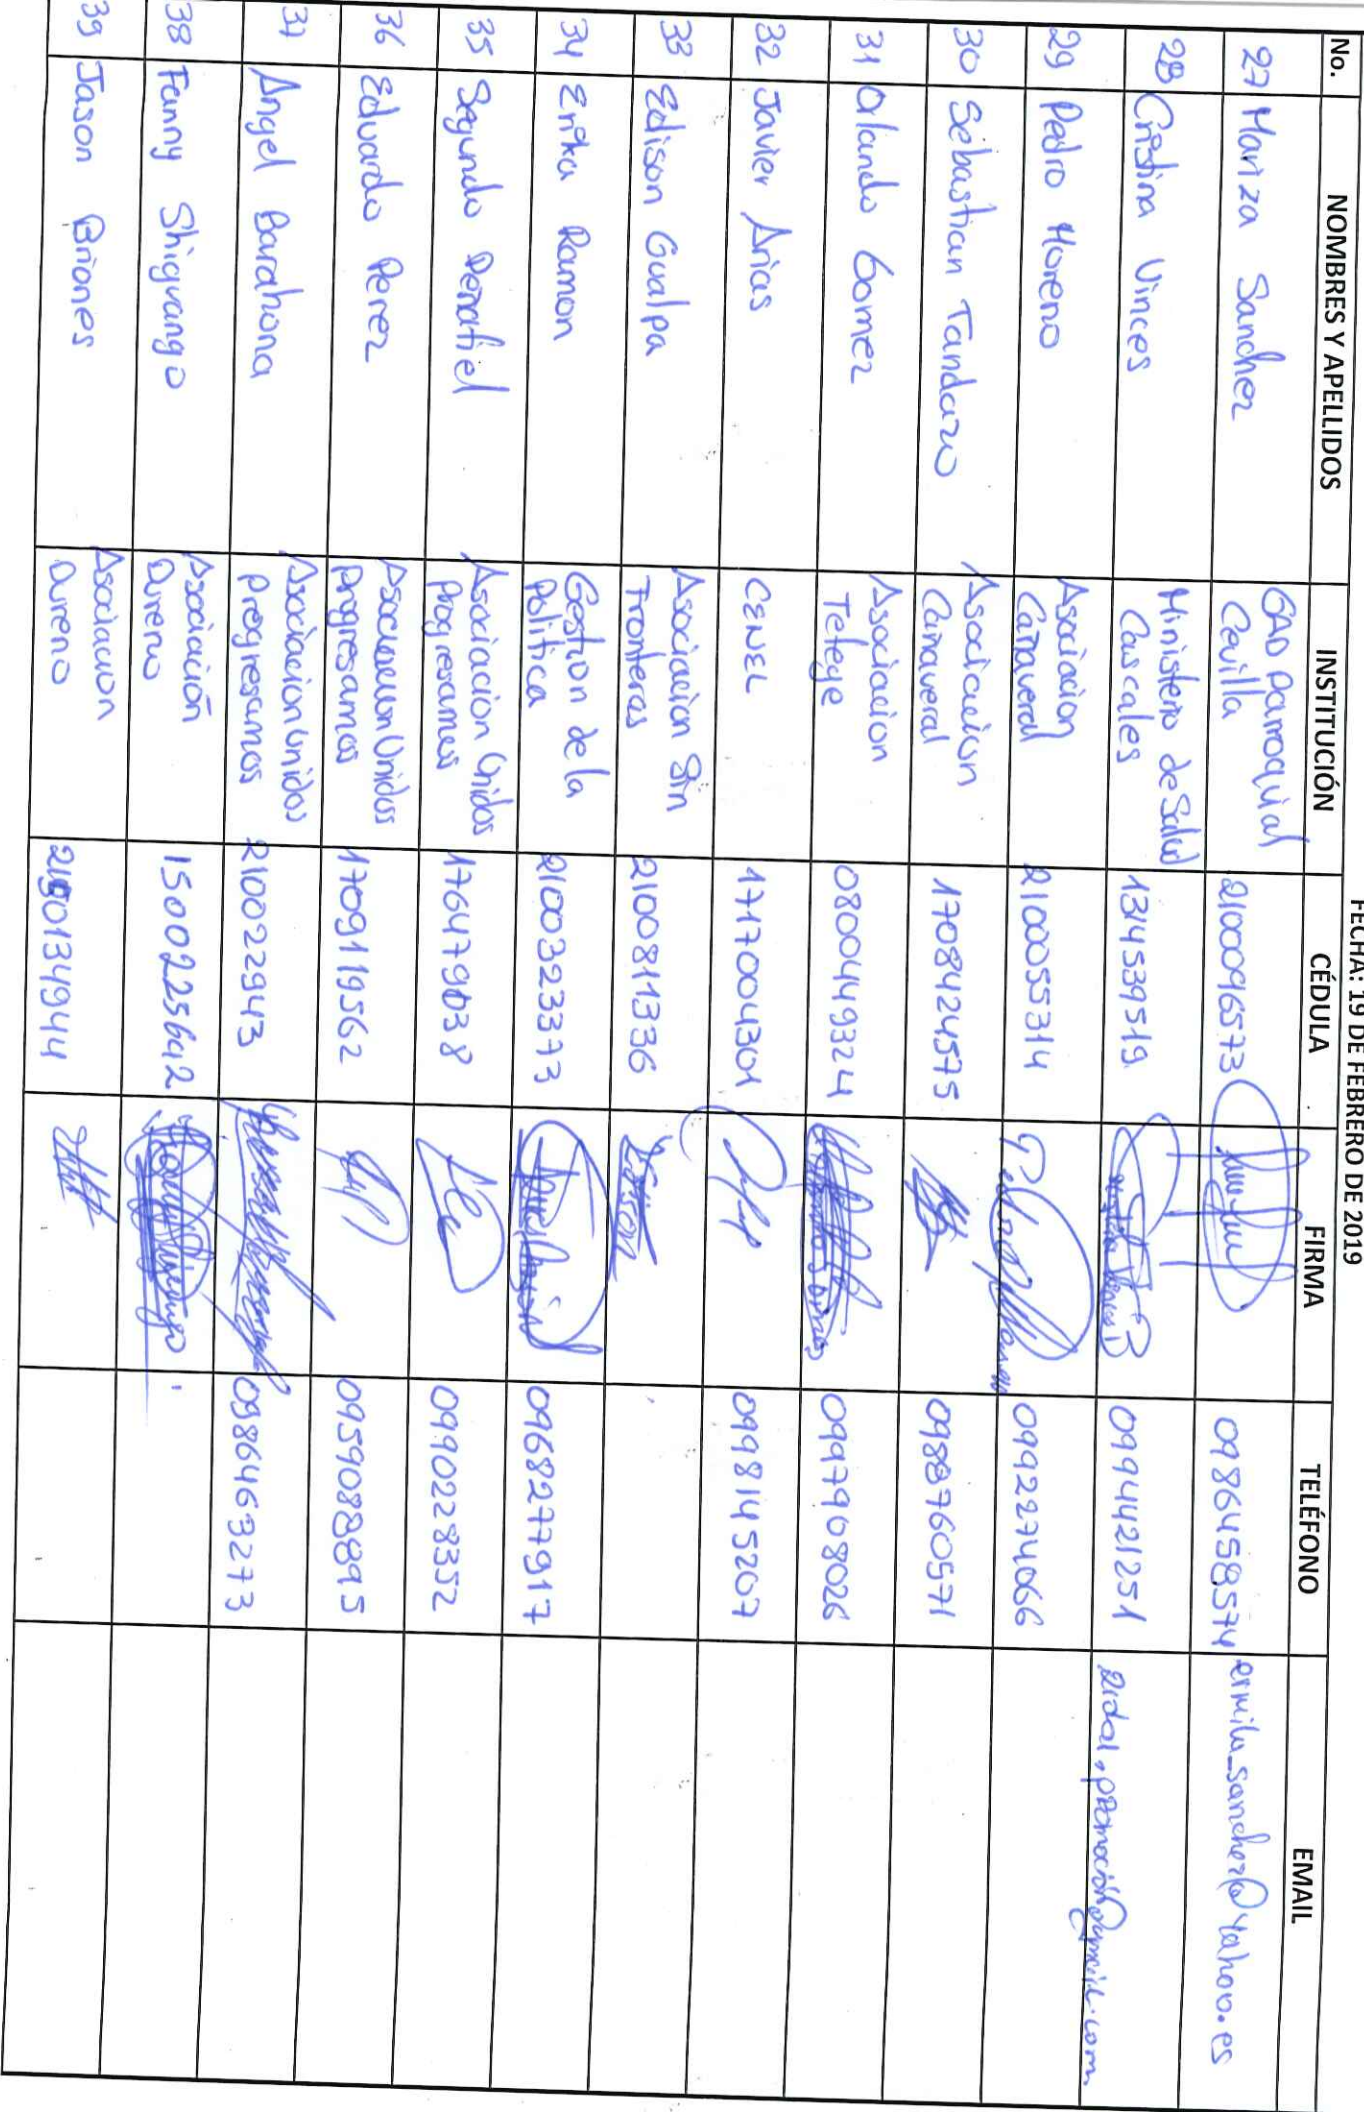 FECHA: 19 DE FEBRERO DE 2019
No. NOMBRES Y APELLIDOS INSTITUCIÓN CÉDULA FIRMA TELÉFONO EMAIL
27 Mariza Sanchez GAD Parroquial Cevilla 2100096573 0986458574 ermila_sanchez@yahoo.es
28 Cristina Vinces Ministerio de Salud Cascales 1314539519 0994421251
29 Pedro Moreno Asociacion Cañaveral 2100055314 0992274066
30 Sebastian Tandazo Asociacion Cañaveral 1708424575 0988760571
31 Orlando Gomez Asociacion Teteye 0800449324 0997908026
32 Javier Arias CENEL 1717004301 0998145207
33 Edison Gualpa Asociacion Sin Fronteras 2100811336 Edison
34 Erika Ramon Gestion de la Politica 2100323373 0968277917
35 Segundo Penafiel Asociacion Unidos Progresamos 0990228352
36 Eduardo Perez Asociacion Unidos Progresamos 1709119562 0959088895
37 Angel Barahona Asociacion Unidos Progresamos 210022943 0986463273
38 Fanny Shiguango Asociación Dureno 1500225642
39 Jason Briones Asociacion Dureno